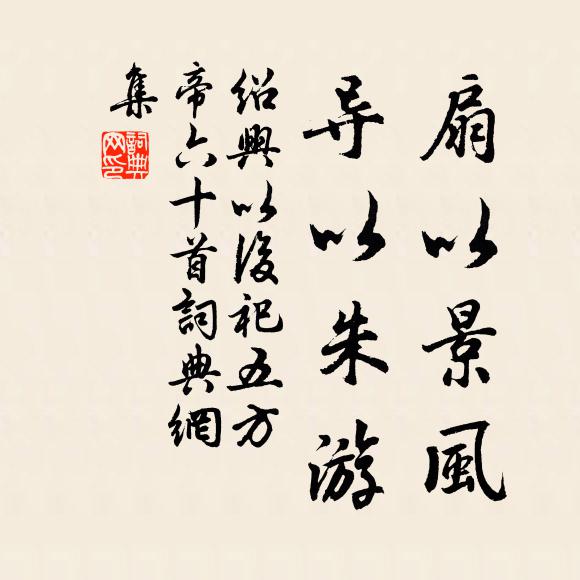 扇以景風
导以朱游
紹興以後祀五方
帝六十首詞典網
集
詞典
网印